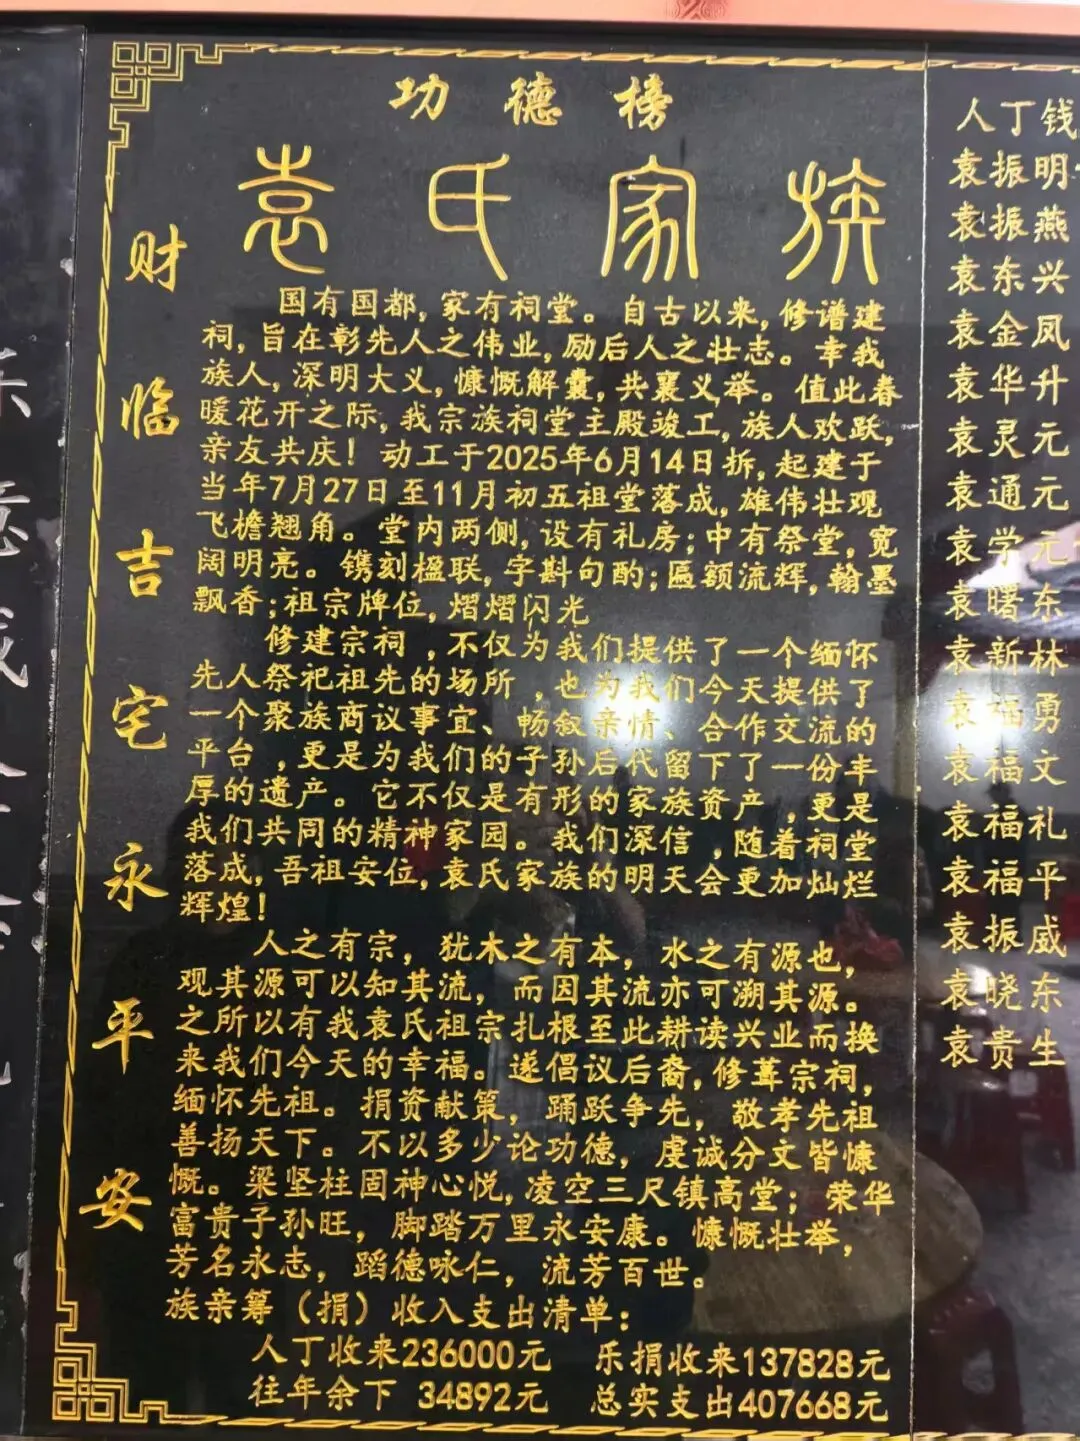 功德榜
袁氏家族
财临吉宅永平安
国有国都，家有祠堂。自古以来，修谱建
祠，旨在彰先人之伟业，励后人之壮志。幸我
族人，深明大义，慷慨解囊，共襄义举。值此春
暖花开之际，我宗族祠堂主殿竣工，族人欢跃，
亲友共庆！动工于2025年6月14日拆，起建于
当年7月27日至11月初五祖堂落成，雄伟壮观
飞檐翘角。堂内两侧，设有礼房；中有祭堂，宽
阔明亮。镌刻楹联，字斟句酌；匾额流辉，翰墨
飘香；祖宗牌位，熠熠闪光
修建宗祠，不仅为我们提供了一个缅怀
先人祭祀祖先的场所，也为我们今天提供了
一个聚族商议事宜、畅叙亲情、合作交流的
平台，更是为我们的子孙后代留下了一份丰
厚的遗产。它不仅是有形的家族资产，更是
我们共同的精神家园。我们深信，随着祠堂
落成，吾祖安位，袁氏家族的明天会更加灿烂
辉煌！
人之有宗，犹木之有本，水之有源也，
观其源可以知其流，而因其流亦可溯其源。
之所以有我袁氏祖宗扎根至此耕读兴业而换
来我们今天的幸福。遂倡议后裔，修葺宗祠，
缅怀先祖。捐资献策，踊跃争先，敬孝先祖
善扬天下。不以多少论功德，虔诚分文皆慷
慨。梁坚柱固神心悦，凌空三尺镇高堂；荣华
富贵子孙旺，脚踏万里永安康。慷慨壮举，
芳名永志，蹈德咏仁，流芳百世。
族亲筹（捐）收入支出清单：
人丁收来236000元 乐捐收来137828元
往年余下 34892元 总实支出407668元
人丁钱
袁振明
袁振燕
袁东兴
袁金凤
袁华升
袁灵元
袁通元
袁学元
袁曙东
袁新林
袁福勇
袁福文
袁福礼
袁福平
袁振威
袁晓东
袁贵生